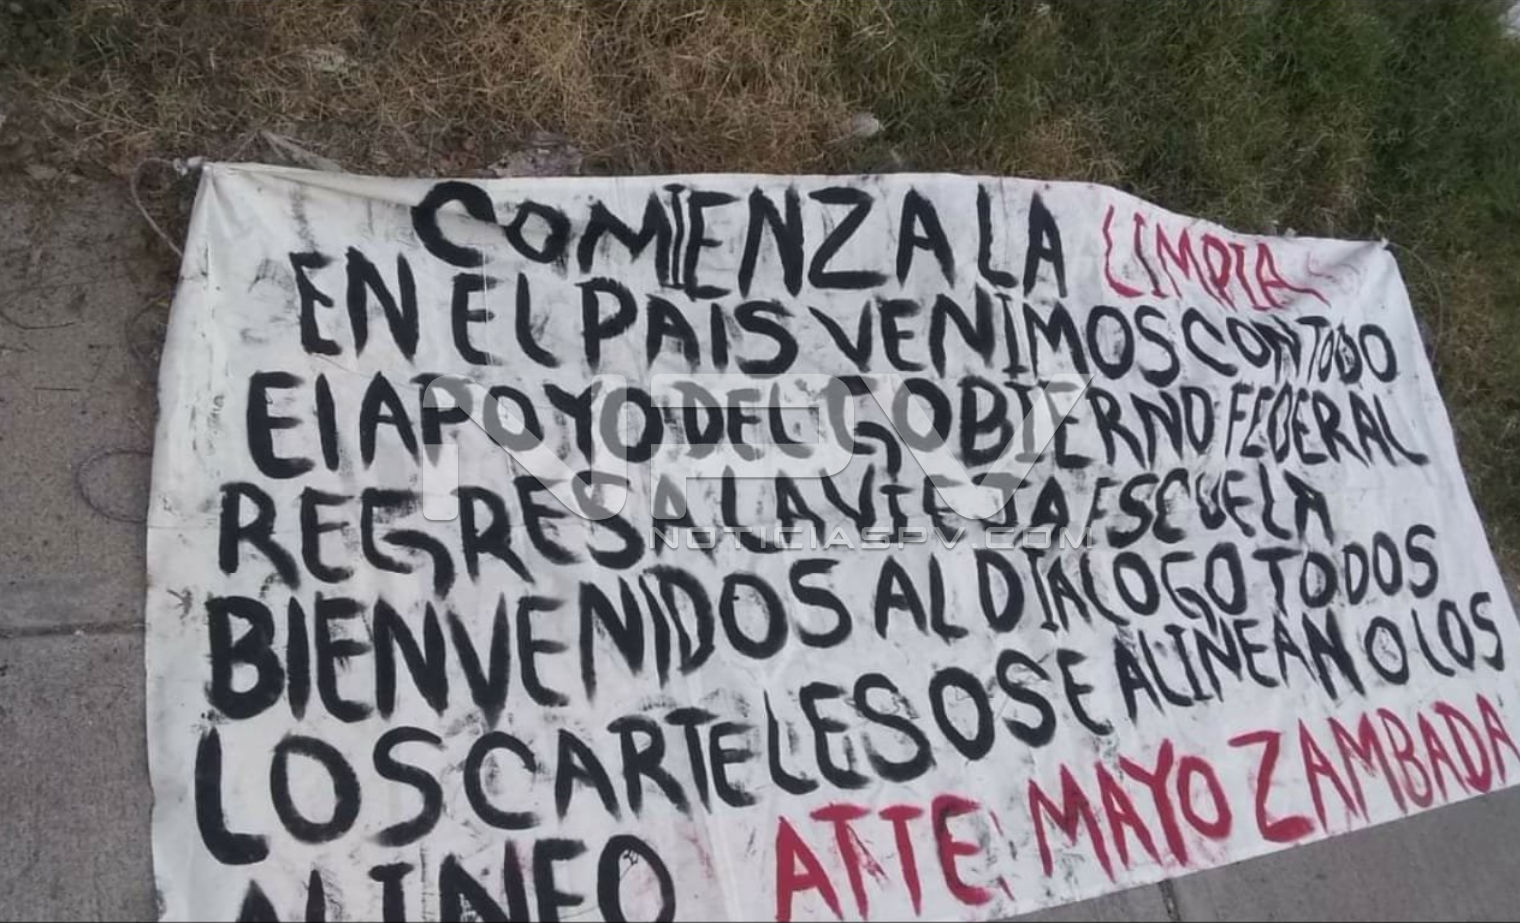 COMIENZA LA LIMPIA
EN EL PAIS VENIMOS CON TODO
El APOYO DEL GOBIERNO FEDERAL
REGRESA LA VIEJA ESCUELA
BIENVENIDOS AL DIALOGO TODOS
LOS CARTELES O SE ALINEAN O LOS
ALINEO ATTE: MAYO ZAMBADA
NPV
NOTICIASPV.COM